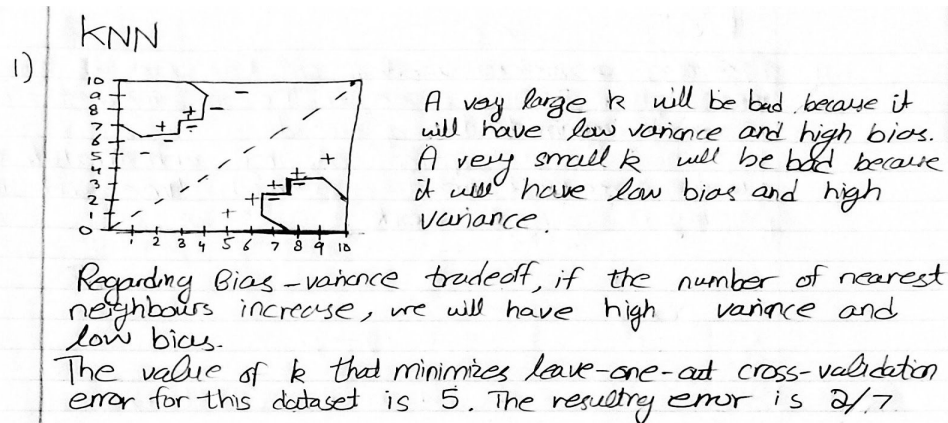 KNN
1)
10
9
8
7
6
5
4
3
2
1
0
1 2 3 4 5 6 7 8 9 10
A very large k will be bad because it
will have low variance and high bias.
A very small k will be bad because
it will have low bias and high
variance.
Regarding Bias-variance tradeoff, if the number of nearest
neighbours increase, we will have high variance and
low bias.
The value of k that minimizes leave-one-out cross-validation
error for this dataset is 5. The resulting error is 2/7